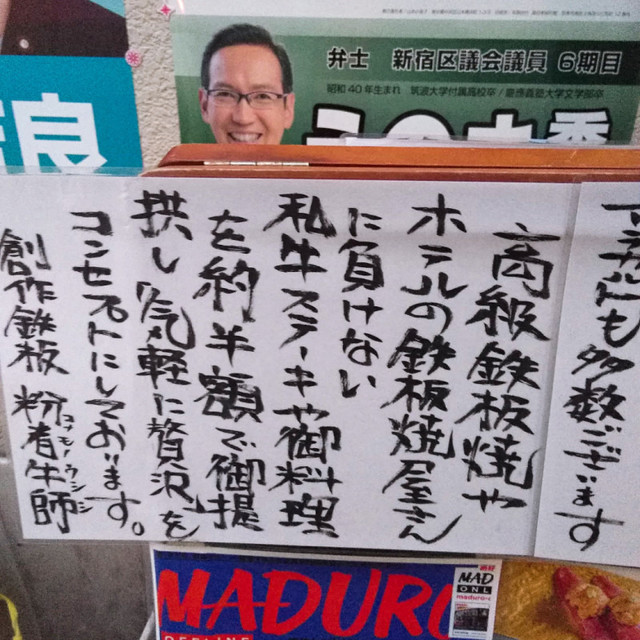 弁士 新宿区議会議員 6期目
昭和40年生まれ 筑波大学付属高校卒/慶應義塾大学文学部卒
良
にも多数ございます
高級鉄板焼や
ホテルの鉄板焼屋さん
に負けない
私牛ステーキや御料理
を約半額で御提
拱し「気軽に贅沢」を
コンセプトにしております。
創作鉄板 粉者牛師
コナモノウシシ
MADURO
OFFLINE
MAD
ONL
maduro-o